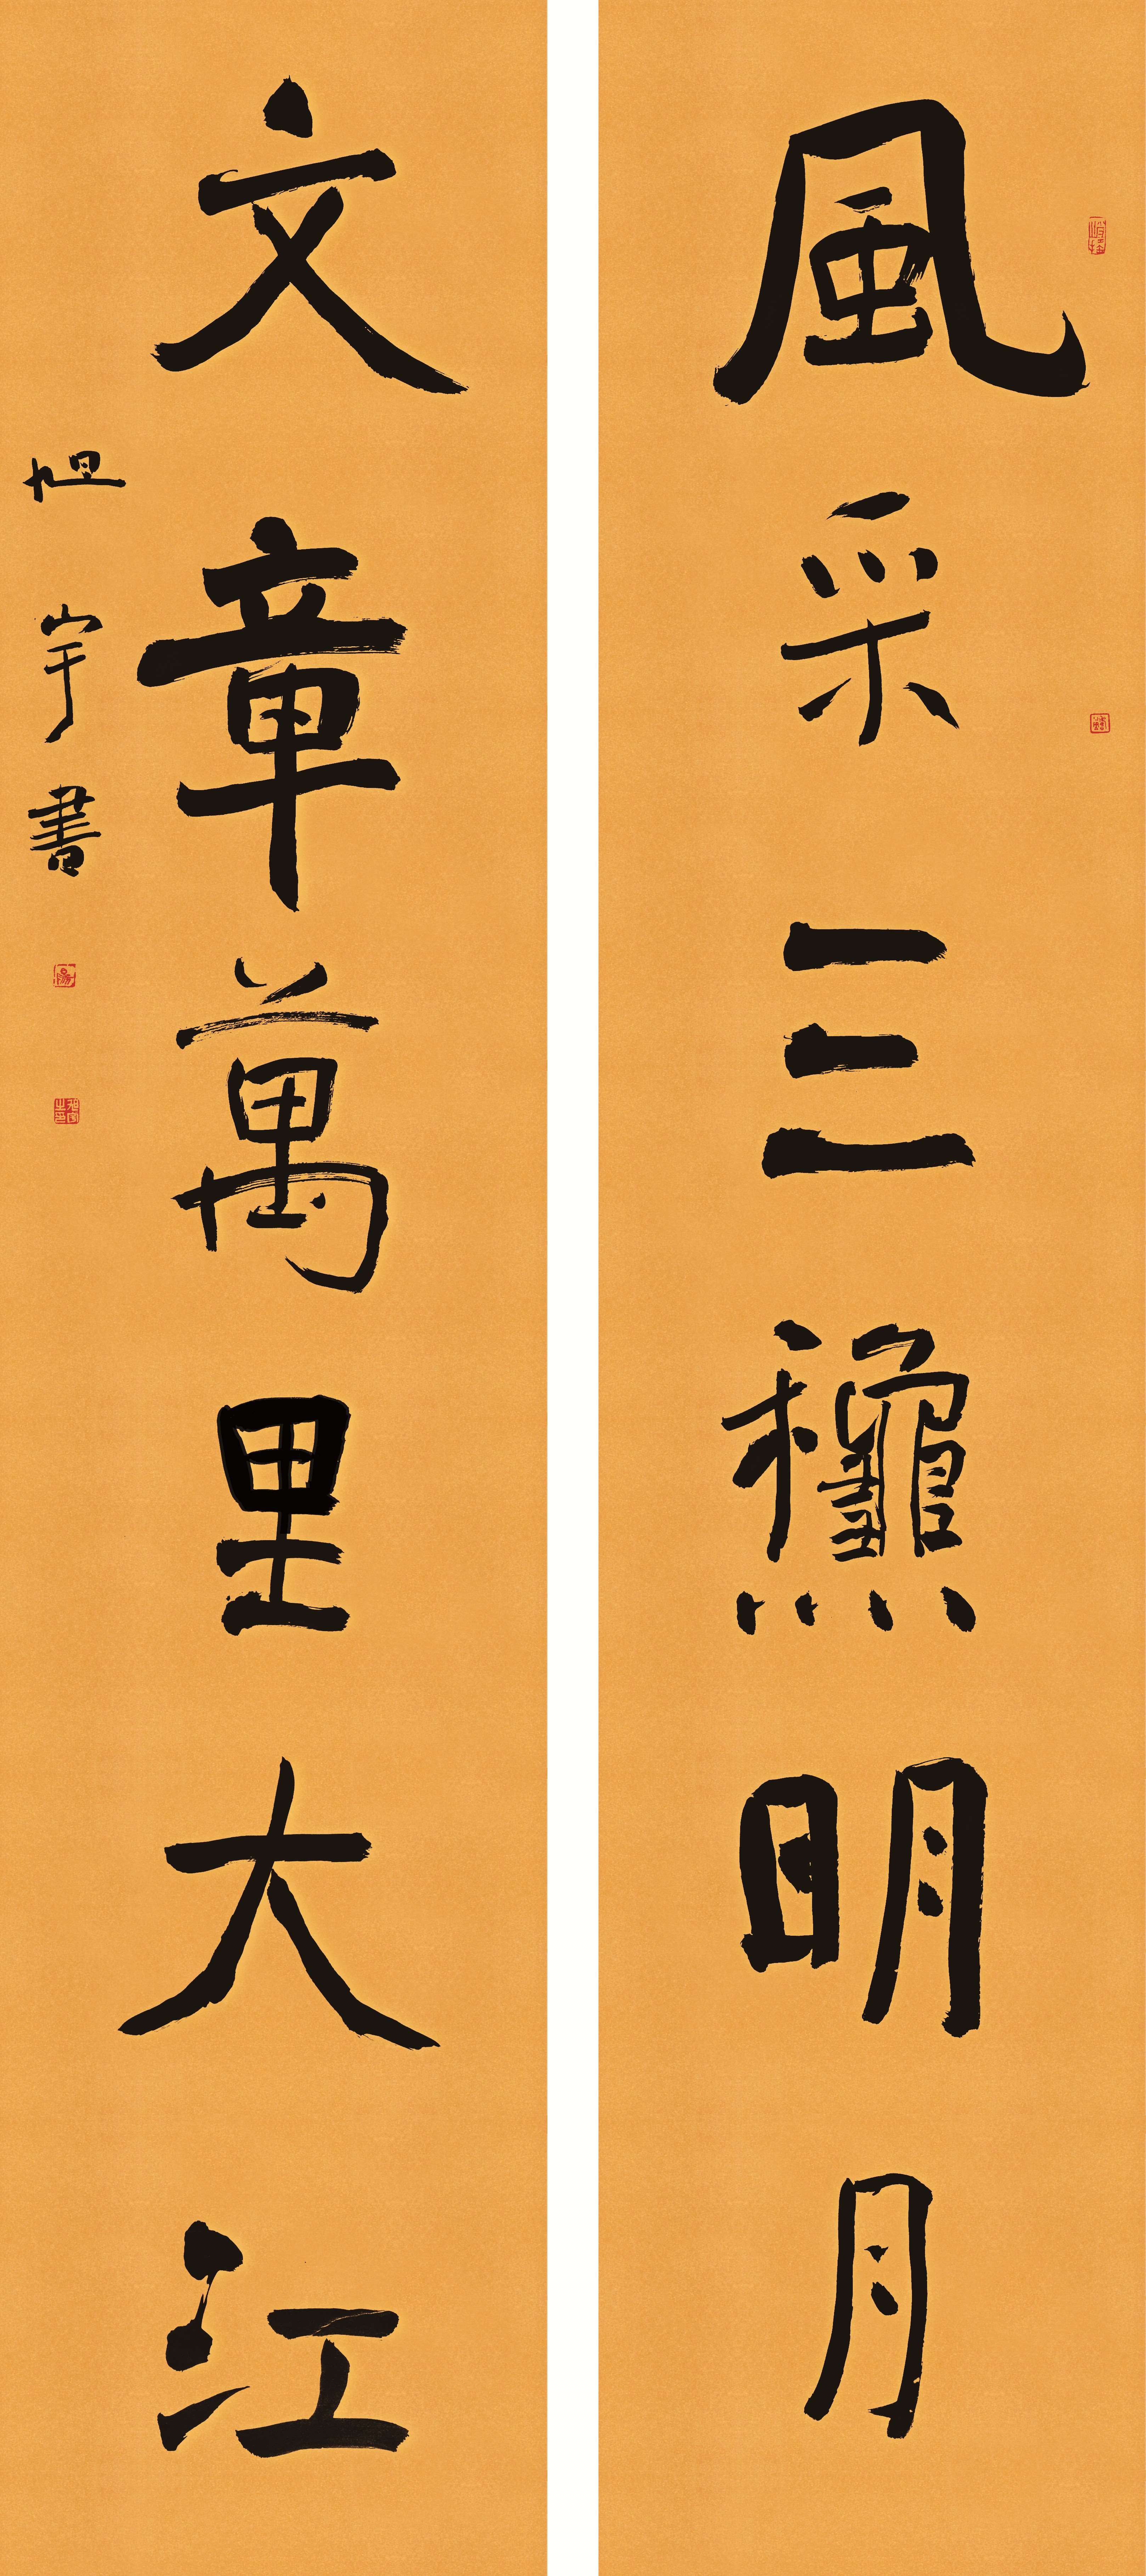 風采三龝明月
文章萬里大江
旭宇書